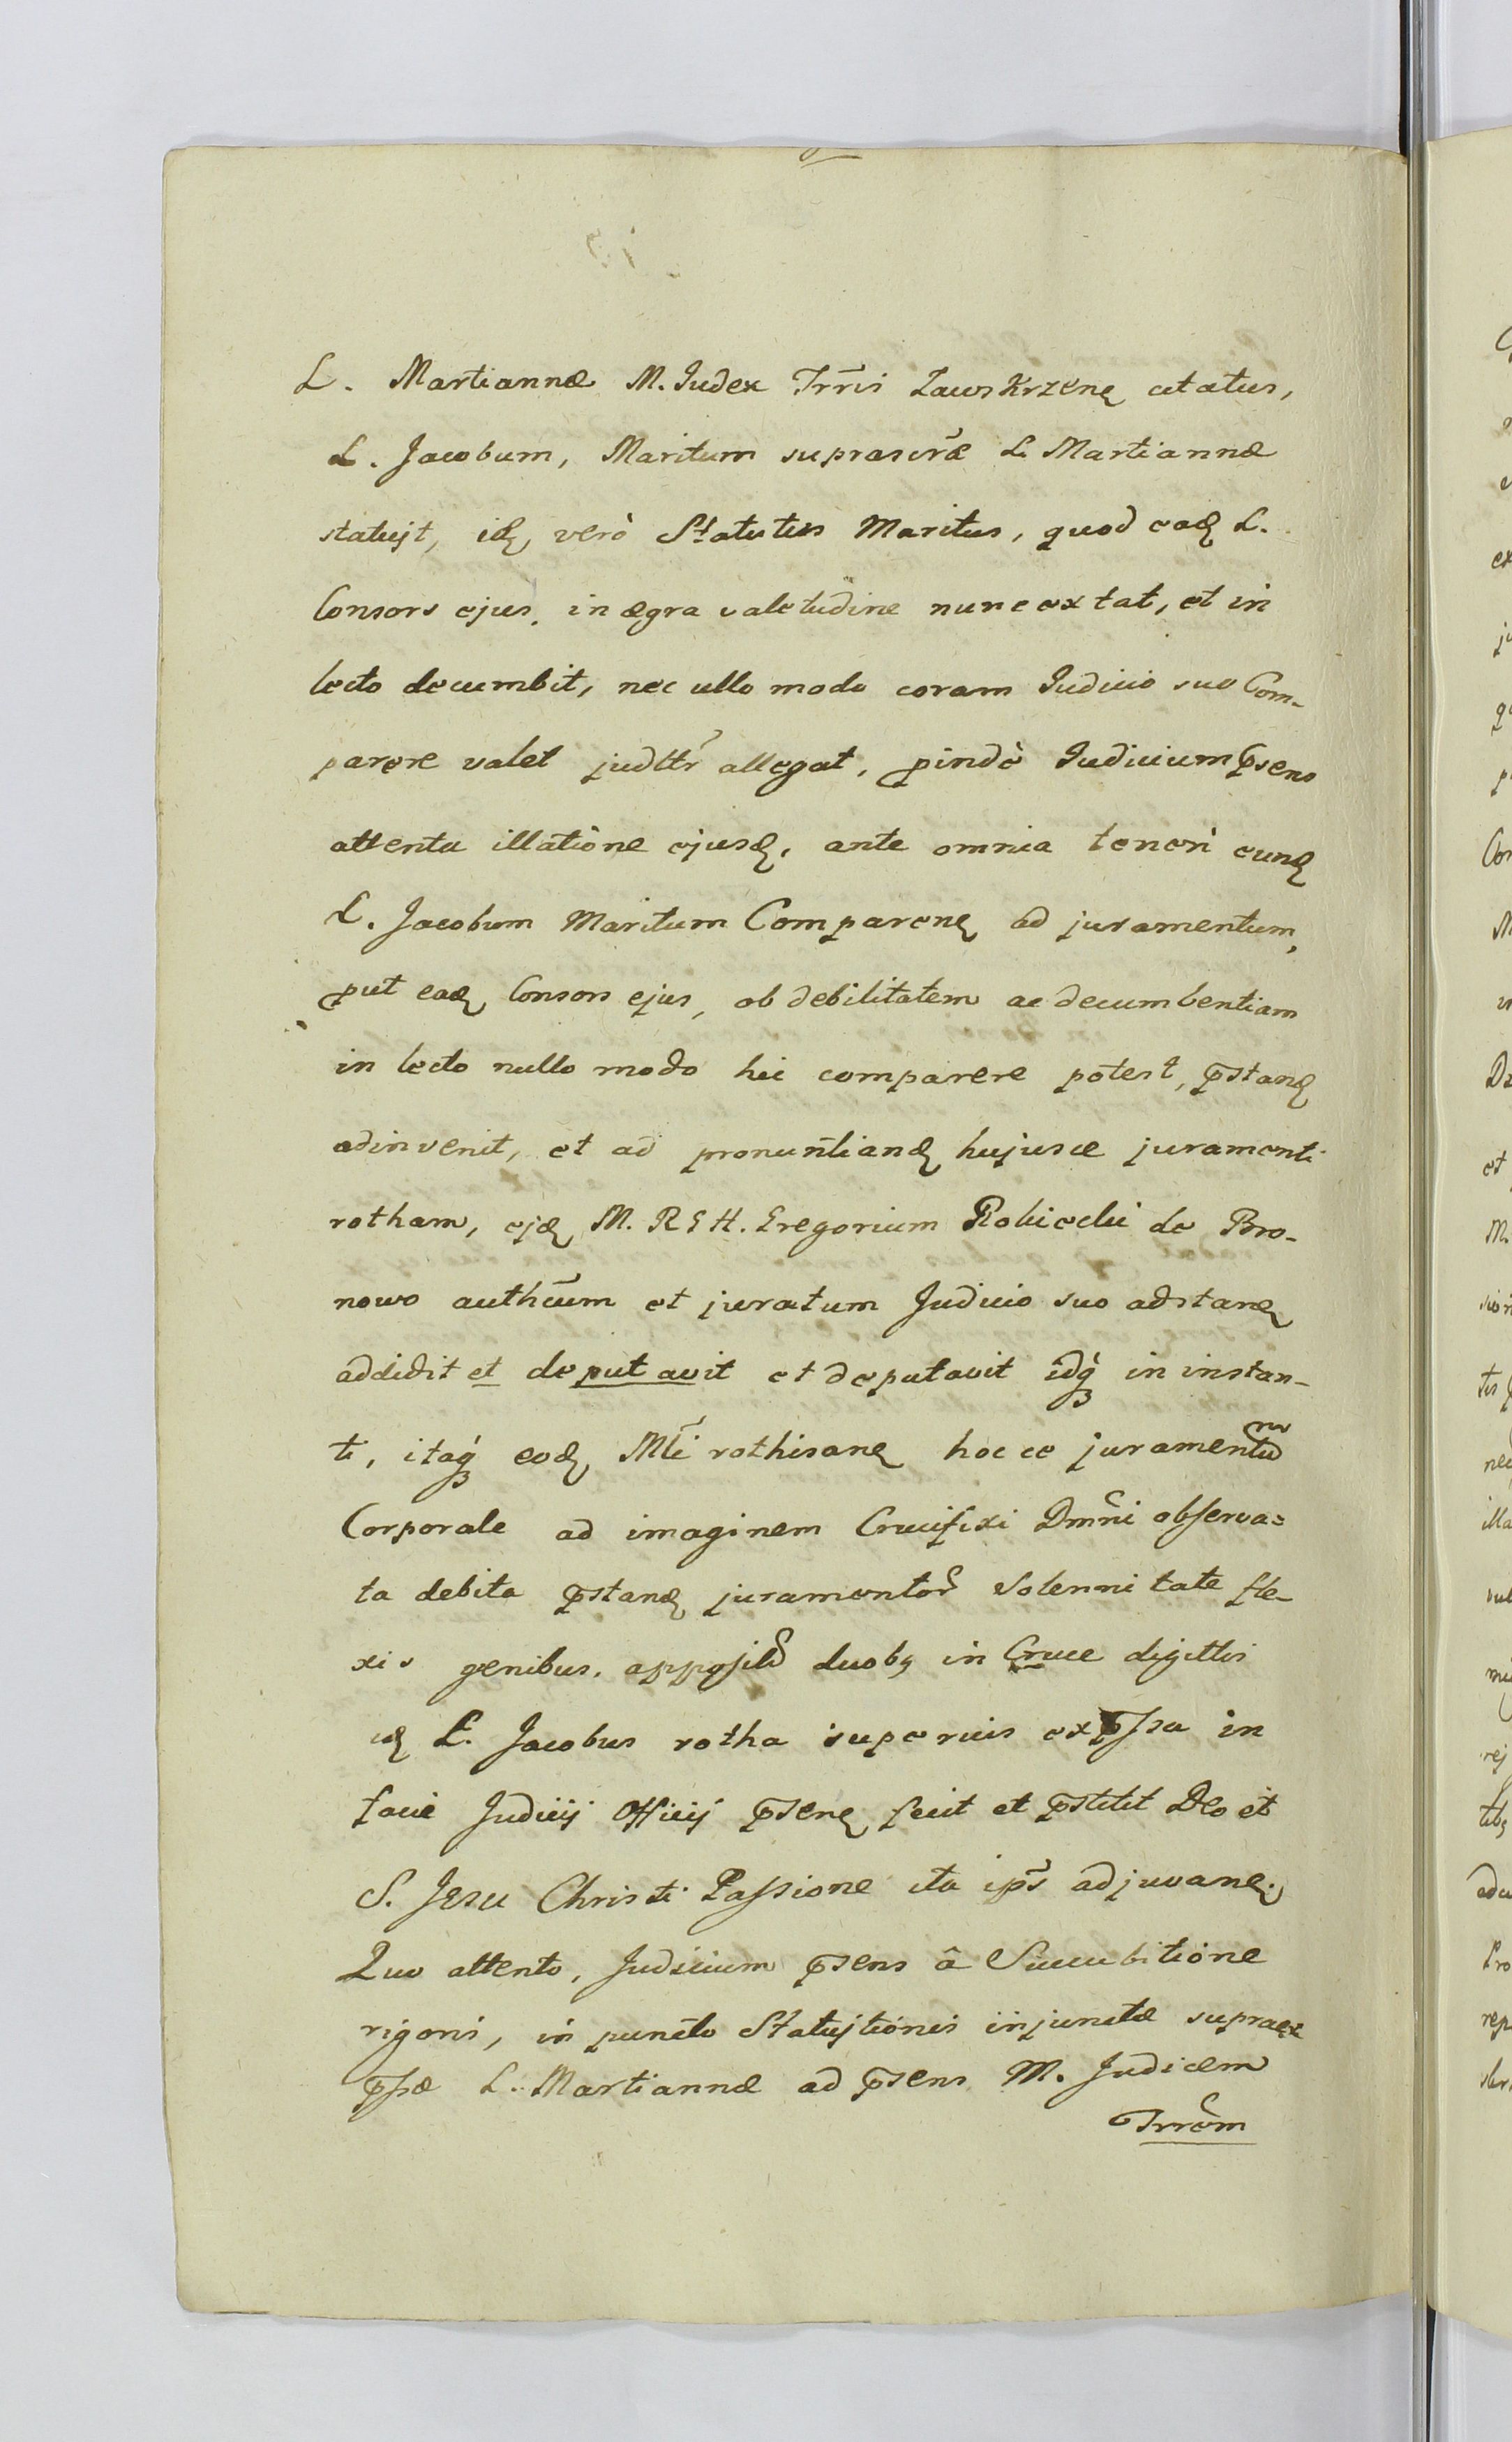 L. Martiannæ M. Iudex Trr̃is Zawskrzenę citatus,
L. Jacobum, Maritum suprascr̃æ L. Martiannæ
statujt, idę verò Statutus Maritus, quod eadę L.
Consors ejus, in ægra valetudine nunc extat, et in
lecto decumbit, nec ullo modo coram Judicio suo Com-
parere valet judttr̃ allegat, proindè Iudicium pꝛsens
attenta illatiõne ejusdę, ante omnia teneri eundę
L. Jacobum Maritum Comparenę ad juramentum,
prut eadę Consors ejus, ob debilitatem ac decumbentiam
in lecto nullo modo hic comparere potest, pꝛstandę
adinvenit, et ad pronuñtiandę hujusce juramenti
rotham, ejdę M. R G H. Gregorium Robieckii de Bro-
nowo auth̃cum et juratum Judicio suo adstanę
addidit et deputavit et deputavit idqꝫ in instan-
ti, itaqꝫ eodę Mtĩ rothisanę hocce juramentum
Corporale ad imaginem Crucifixi Dmñi observa=
ta debita pꝛstandę juramentor̃ Solennitate fle-
xis genibus, appositis duobꝫ in Cruce digittis
idę L. Jacobus rotha superius expꝛssa in
facie Judicij Officij pꝛsenę fecit et pꝛstitit Deo et
S. Jesu Christi Passione ita ips̃ adjuvanę.
Quo attento, Judicium pꝛsens â Succubitiõne
rigoris, in puncto Statujtiõnis injunctæ supraex
pꝛssæ L. Martiannæ ad pꝛsens M. Judicem
Trrẽm